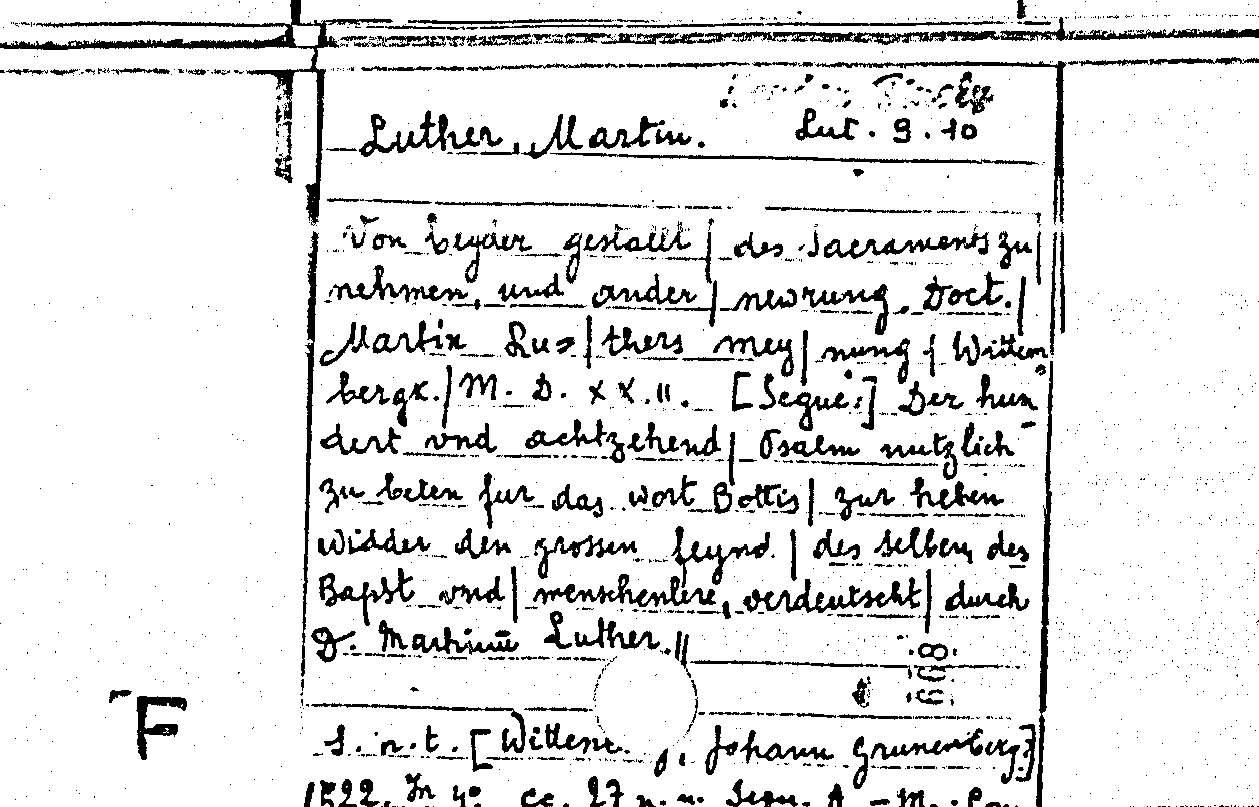 Luther, Martin. Lut. 9.10
Von beyder gestallt | des Sacraments zu |
nehmen, und ander | newrung. Doct. |
Martin Lu= | thers mey | nung | Wittem
bergk. | M. D. XX.II. [Segue:] Der hun
dert vnd achtzehend | Psalm nutzlich
zu beten fur das wort Gottis | zur heben
widder den grossen feynd | des selben, des
Bapst vnd | menschenlere, verdeutscht | durch
D. Martinū Luther. ||
608
F
S. n. t. [ , Johann Grunenberg]
1522. In 4° cc. 27 n. n. Segn. A - M.